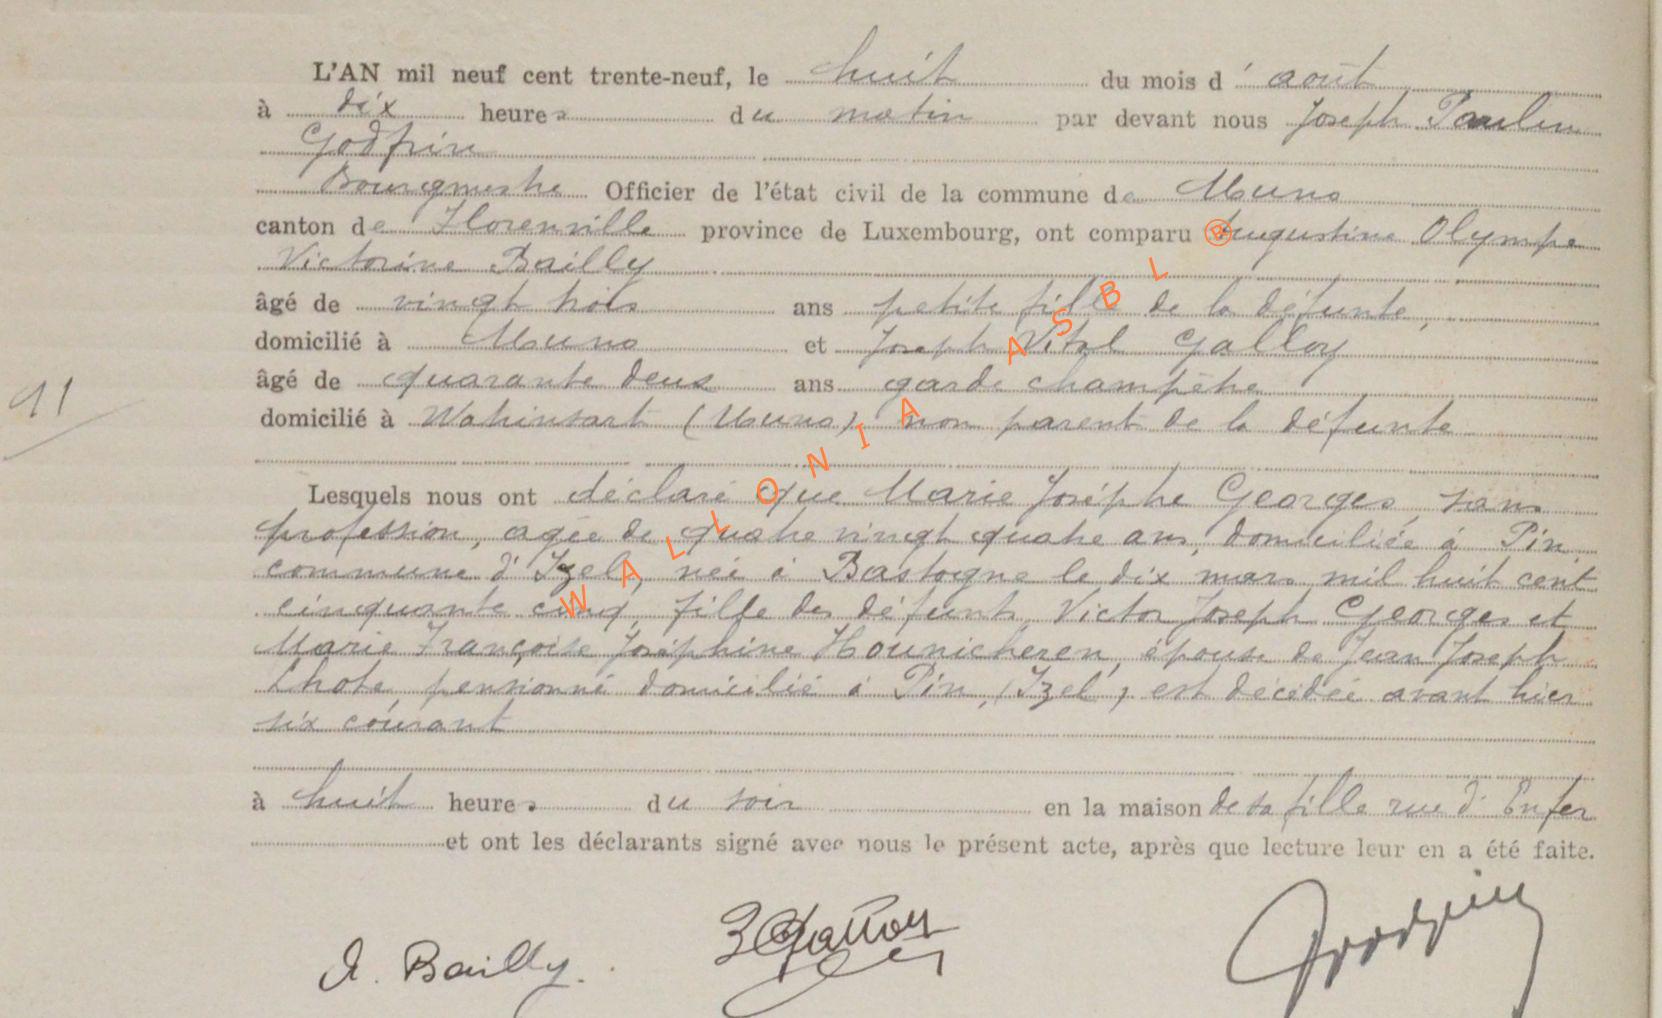 L'AN mil neuf cent trente-neuf, le huit du mois d' août
à dix heures du matin par devant nous Joseph Paulin
Godfrin
Bourgmestre Officier de l'état civil de la commune de Muno
canton de Florenville province de Luxembourg, ont comparu Augustine Olympe
Victorine Bailly
âgé de vingt trois ans petite fille de la défunte,
domicilié à Muno et Joseph Vital Galloy
âgé de quarante deux ans garde champêtre
domicilié à Watrinsart (Muno) non parent de la défunte
91
Lesquels nous ont déclaré que Marie Josèphe Georges, sans
profession, agée de quatre vingt quatre ans, domiciliée à Pin
commune d'Izel, née à Bastogne le dix mars mil huit cent
cinquante cinq, fille des défunts Victor Joseph Georges et
Marie Françoise Joséphine Hounicheren, épouse de Jean Joseph
Lhote, pensionné domicilié à Pin, (Izel) est décédée avant hier
six courant
à huit heures du soir en la maison de sa fille rue d'Enfer
et ont les déclarants signé avec nous le présent acte, après que lecture leur en a été faite.
A. Bailly.
Galloy
Godfrin
WALLONIA ASBL